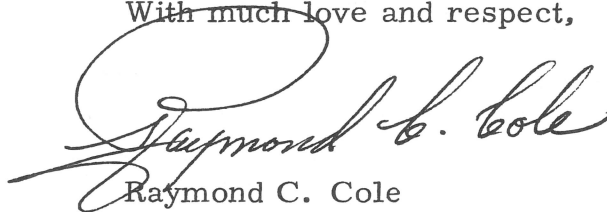 With much love and respect,
Raymond C. Cole
Raymond C. Cole